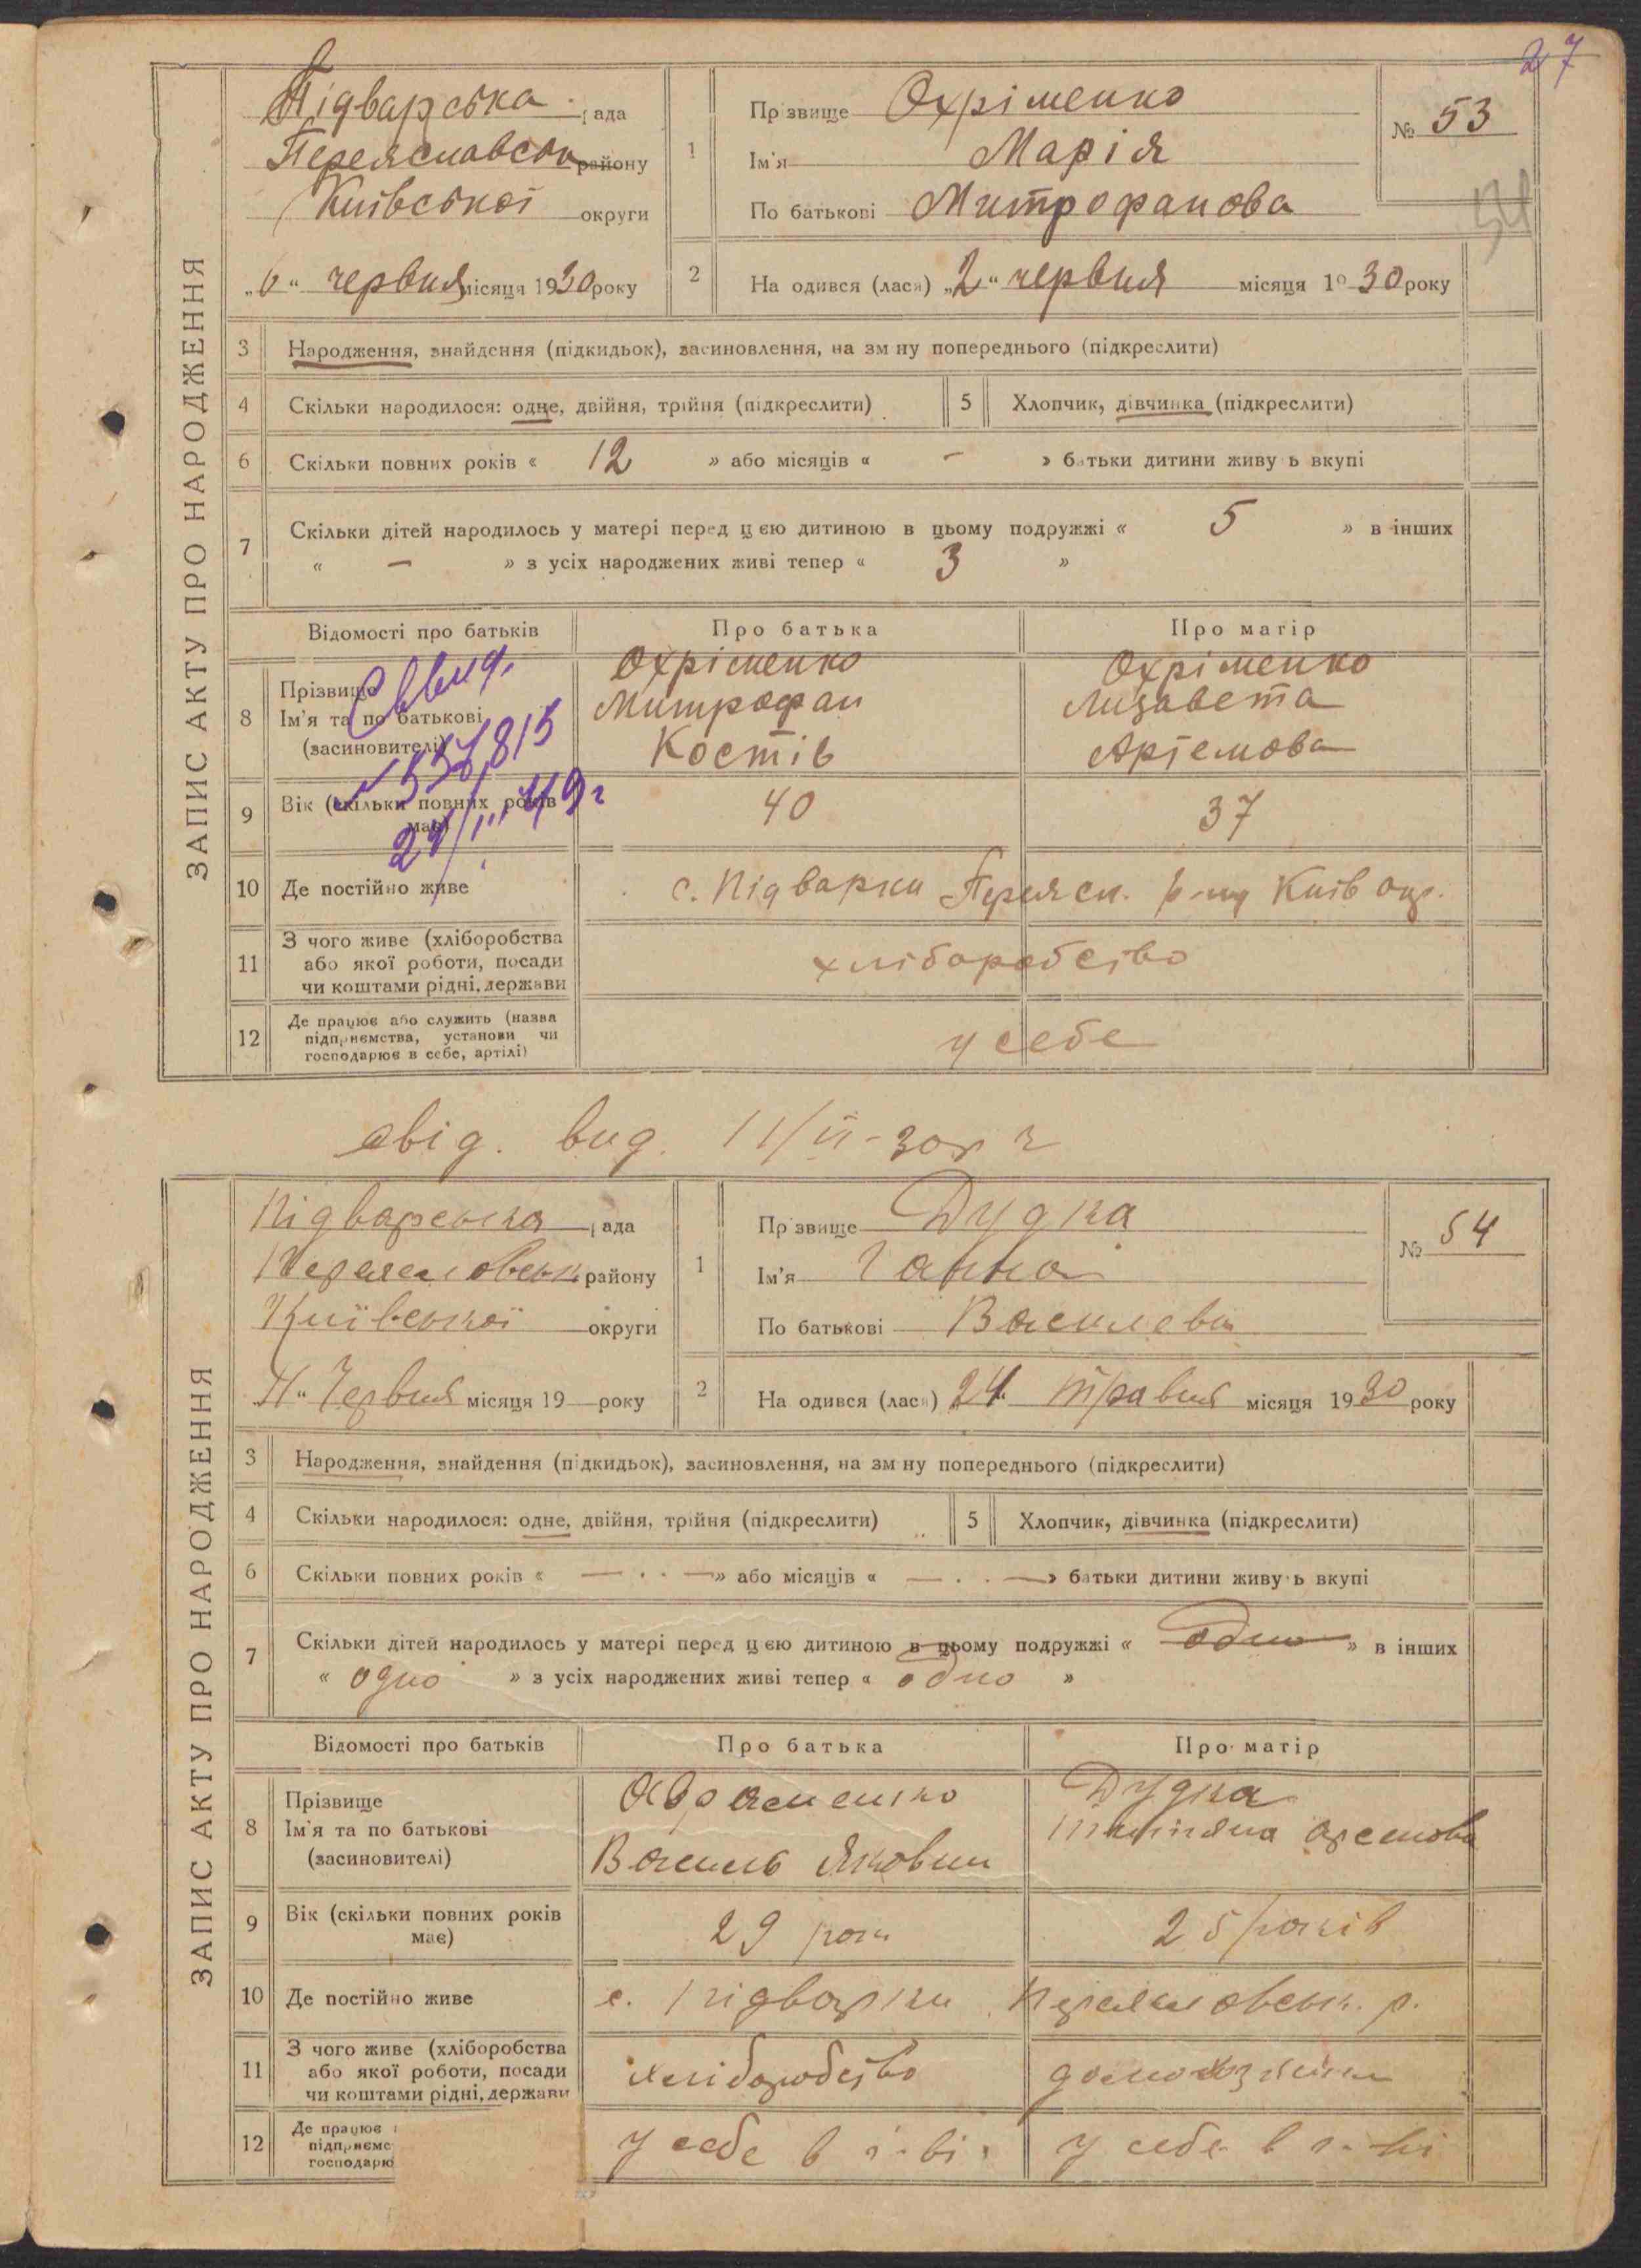 27
ЗАПИС АКТУ ПРО НАРОДЖЕННЯ
Підварська рада
Переяславськ району
Київської округи
„6“ червня місяця 1930 року
1
Прізвище Охріменко
Ім'я Марія
По батькові Митрофанова
№ 53
2
На одився (лася) „2“ червня місяця 1930 року
3 Народження, знайдення (підкидьок), засиновлення, на зм ну попереднього (підкреслити)
4 Скільки народилося: одне, двійня, трійня (підкреслити)
5 Хлопчик, дівчинка (підкреслити)
6 Скільки повних років « 12 » або місяців « – » батьки дитини живу ь вкупі
7 Скільки дітей народилось у матері перед ц ею дитиною в цьому подружжі « 5 » в інших
« – » з усіх народжених живі тепер « 3 »
Відомості про батьків Про батька Про матір
8 Прізвище
Ім'я та по батькові
(засиновителі)
Охріменко
Митрофан
Костів
Охріменко
Лизавета
Артемова
9 Вік (скільки повних років
має)
40 37
10 Де постійно живе
с. Підварки Переясл. р-ну Київ окр.
11 З чого живе (хліборобства
або якої роботи, посади
чи коштами рідні, держави
хліборобство
12 Де працює або служить (назва
підприємства, установи чи
господарює в себе, артілі)
у себе
свід. вид.
ЗАПИС АКТУ ПРО НАРОДЖЕННЯ
Підварська рада
Переяславськ району
Київської округи
Червня місяця 19 року
1
Прізвище Дудка
Ім'я Ганна
По батькові Василева
№ 54
2
На одився (лася) 24 травня місяця 1930 року
3 Народження, знайдення (підкидьок), засиновлення, на зм ну попереднього (підкреслити)
4 Скільки народилося: одне, двійня, трійня (підкреслити)
5 Хлопчик, дівчинка (підкреслити)
6 Скільки повних років « — » або місяців « — » батьки дитини живу ь вкупі
7 Скільки дітей народилось у матері перед ц ею дитиною в цьому подружжі « одно » в інших
« одно » з усіх народжених живі тепер « одно »
Відомості про батьків Про батька Про матір
8 Прізвище
Ім'я та по батькові
(засиновителі)
Василь Якович
Дудка
Тетяна Аремова
9 Вік (скільки повних років
має)
29 рок 25 років
10 Де постійно живе
с. Підварки Переяславськ. р.
11 З чого живе (хліборобства
або якої роботи, посади
чи коштами рідні, держави
хліборобство
12 Де працює
підприємс
господарю
у себе в г-ві у себе в г-ві